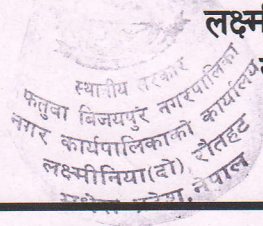 लक्ष्मी
स्थानीय सरकार
फतुवा बिजयपुर नगरपालिका
नगर कार्यपालिकाको कार्यालय
लक्ष्मीनिया(दो) रौतहट
नेपाल